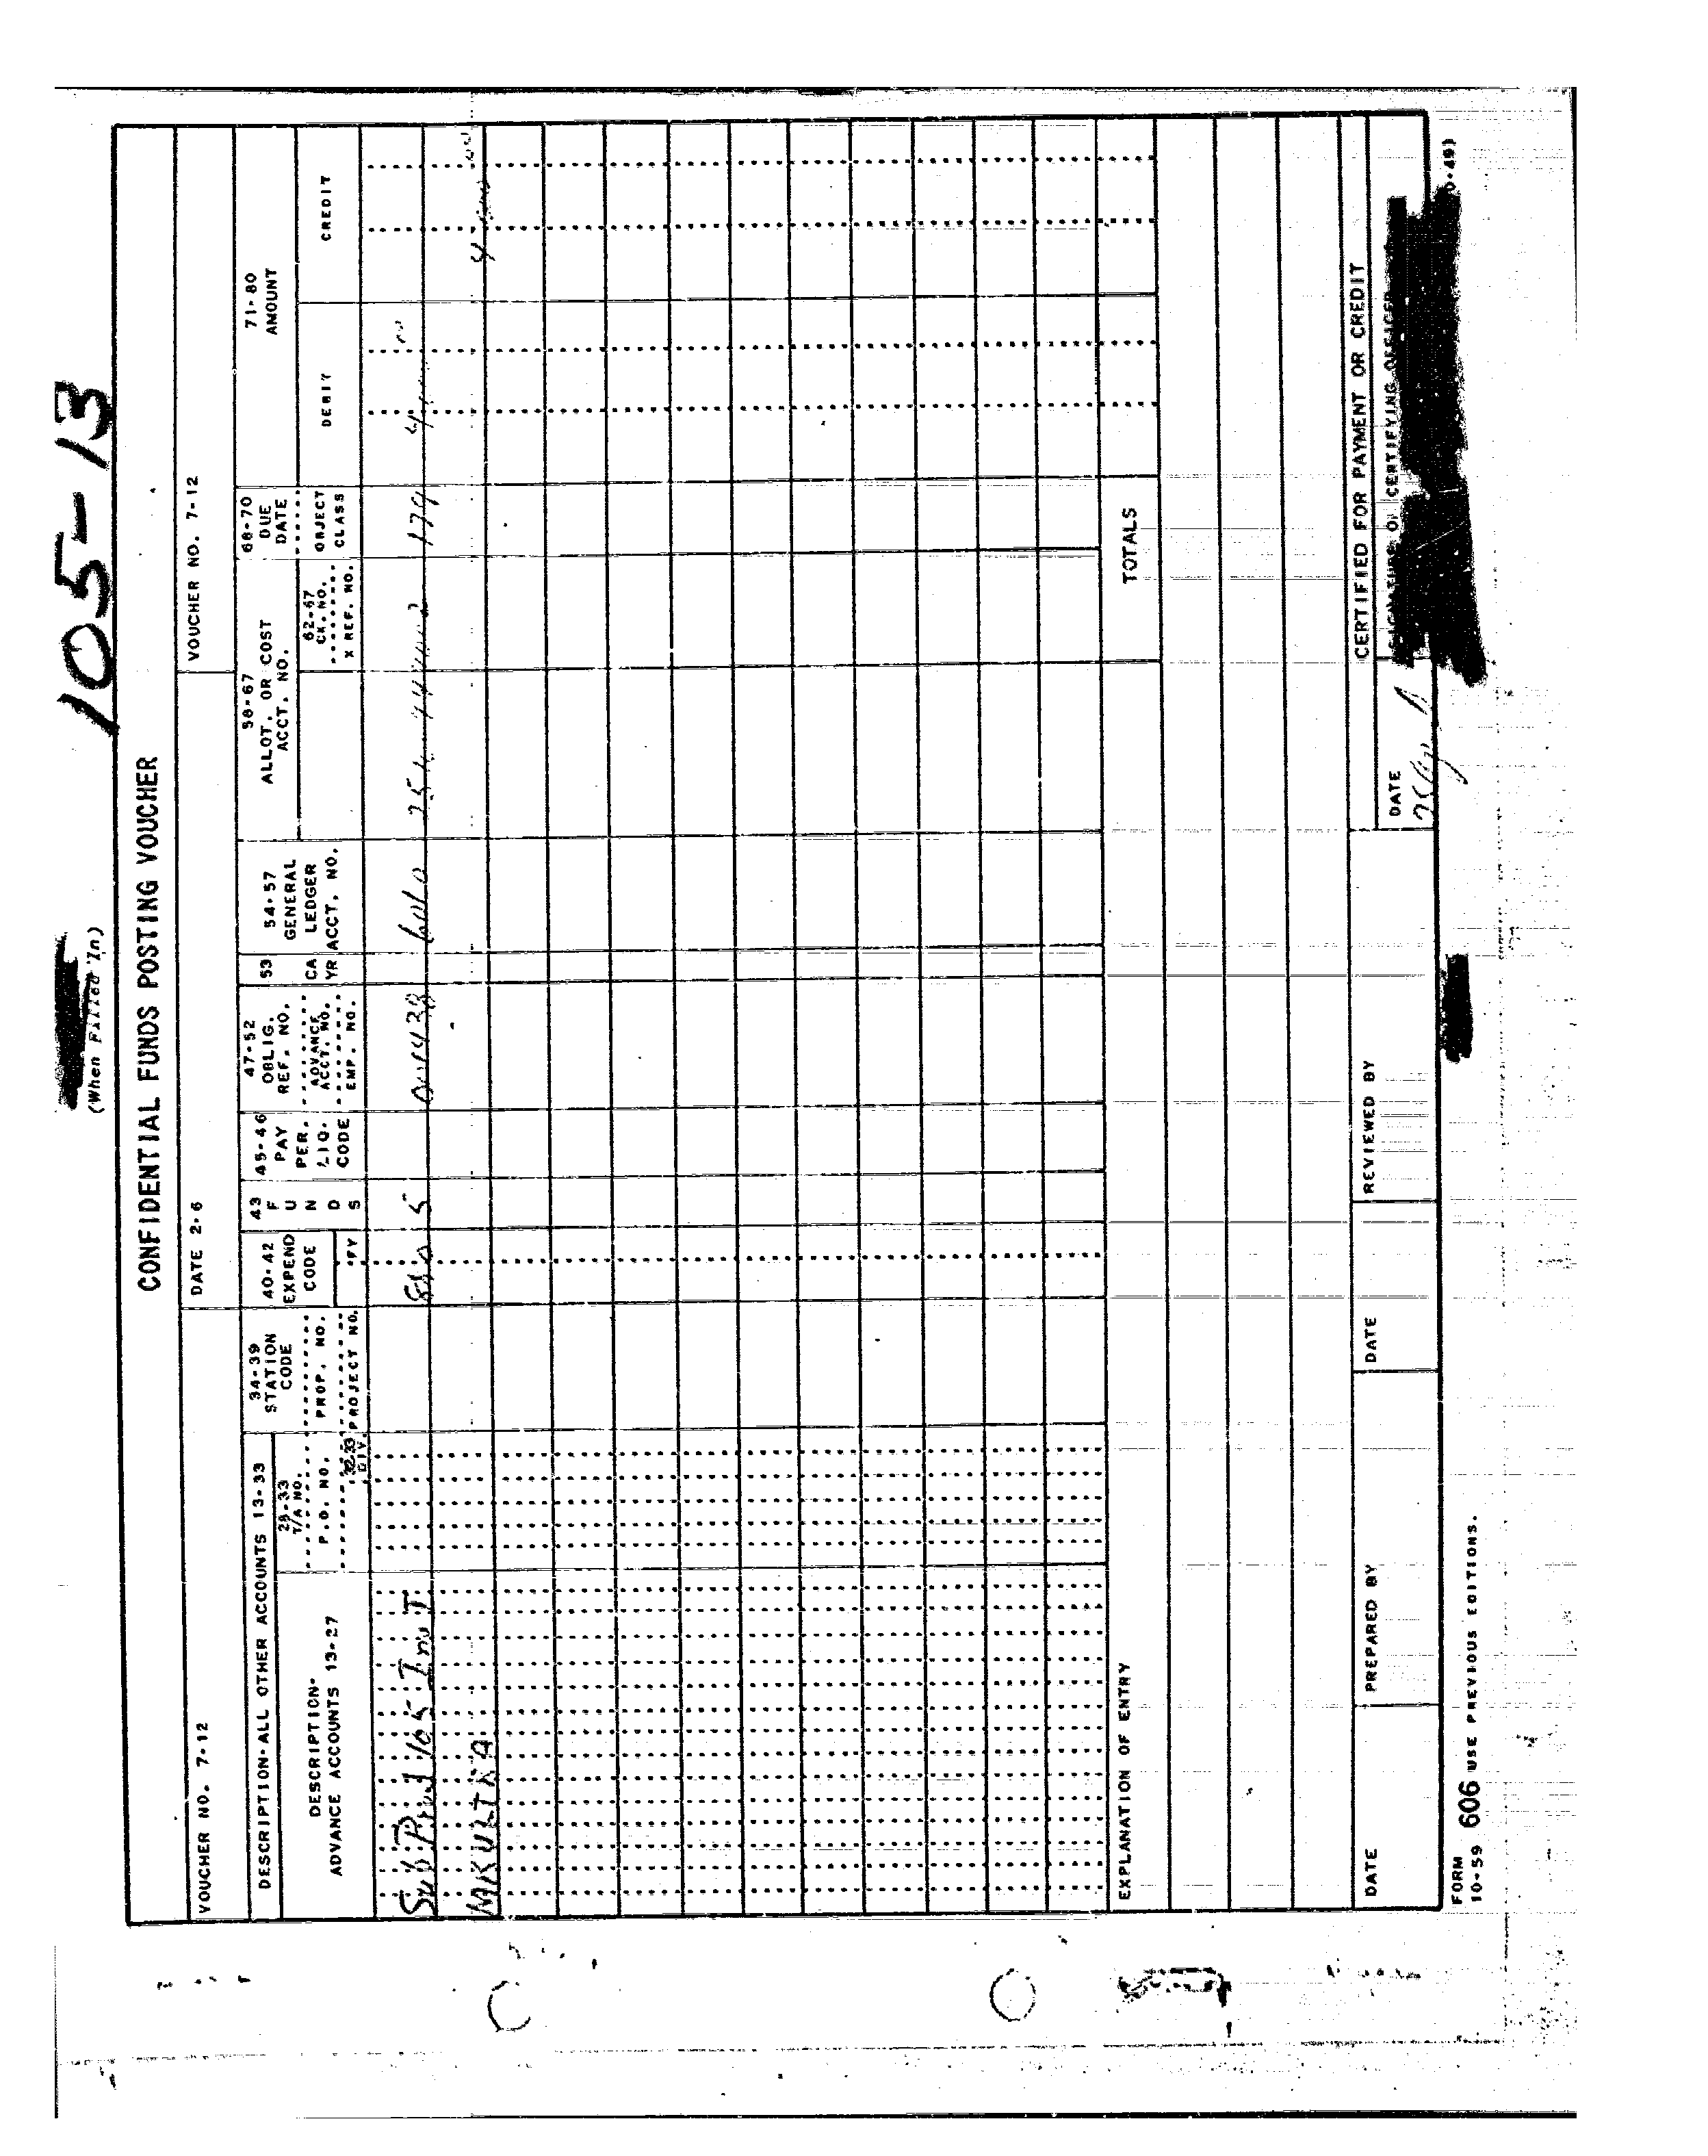 105-13
(When Filled In)
CONFIDENTIAL FUNDS POSTING VOUCHER
VOUCHER NO. 7-12
DATE 2-6
VOUCHER NO. 7-12
DESCRIPTION-ALL OTHER ACCOUNTS 13-33
DESCRIPTION-
ADVANCE ACCOUNTS 13-27
28-33
T/A NO.
P.O. NO.
32-33
DIV.
34-39
STATION
CODE
PROP. NO.
PROJECT NO.
40-42
EXPEND
CODE
FY
43
F
U
N
D
S
45-46
PAY
PER.
LIQ.
CODE
47-52
OBLIG.
REF. NO.
ADVANCE
ACCT. NO.
EMP. NO.
53
CA
YR
54-57
GENERAL
LEDGER
ACCT. NO.
58-67
ALLOT. OR COST
ACCT. NO.
62-67
CK. NO.
X REF. NO.
68-70
DUE
DATE
OBJECT
CLASS
71-80
AMOUNT
DEBIT
CREDIT
Sub Proj 105 Inv T
5
MKULTRA
TOTALS
EXPLANATION OF ENTRY
CERTIFIED FOR PAYMENT OR CREDIT
DATE
PREPARED BY
DATE
REVIEWED BY
DATE
SIGNATURE OF CERTIFYING OFFICER
FORM
10-59 606 USE PREVIOUS EDITIONS.